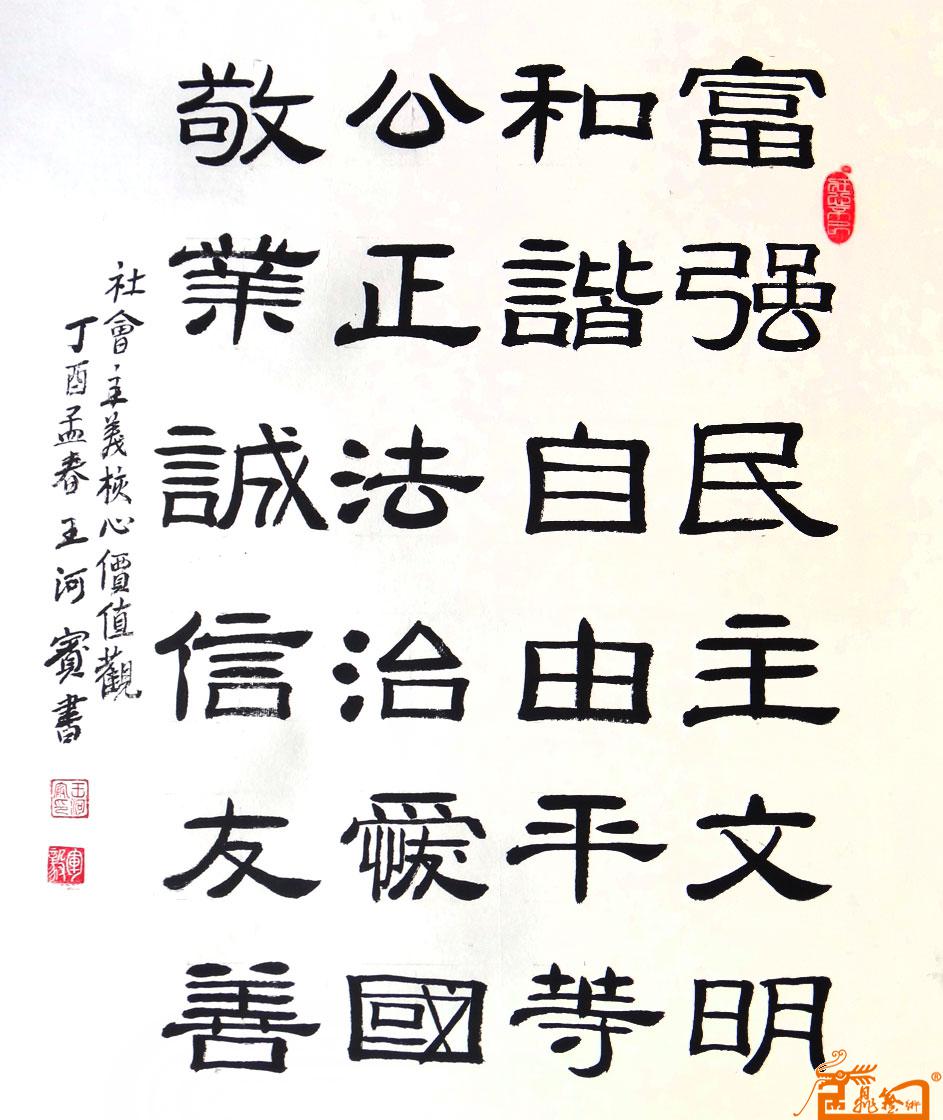 富强民主文明
和諧自由平等
公正法治愛國
敬業誠信友善
社會主義核心價值觀
丁酉孟春王河賓書